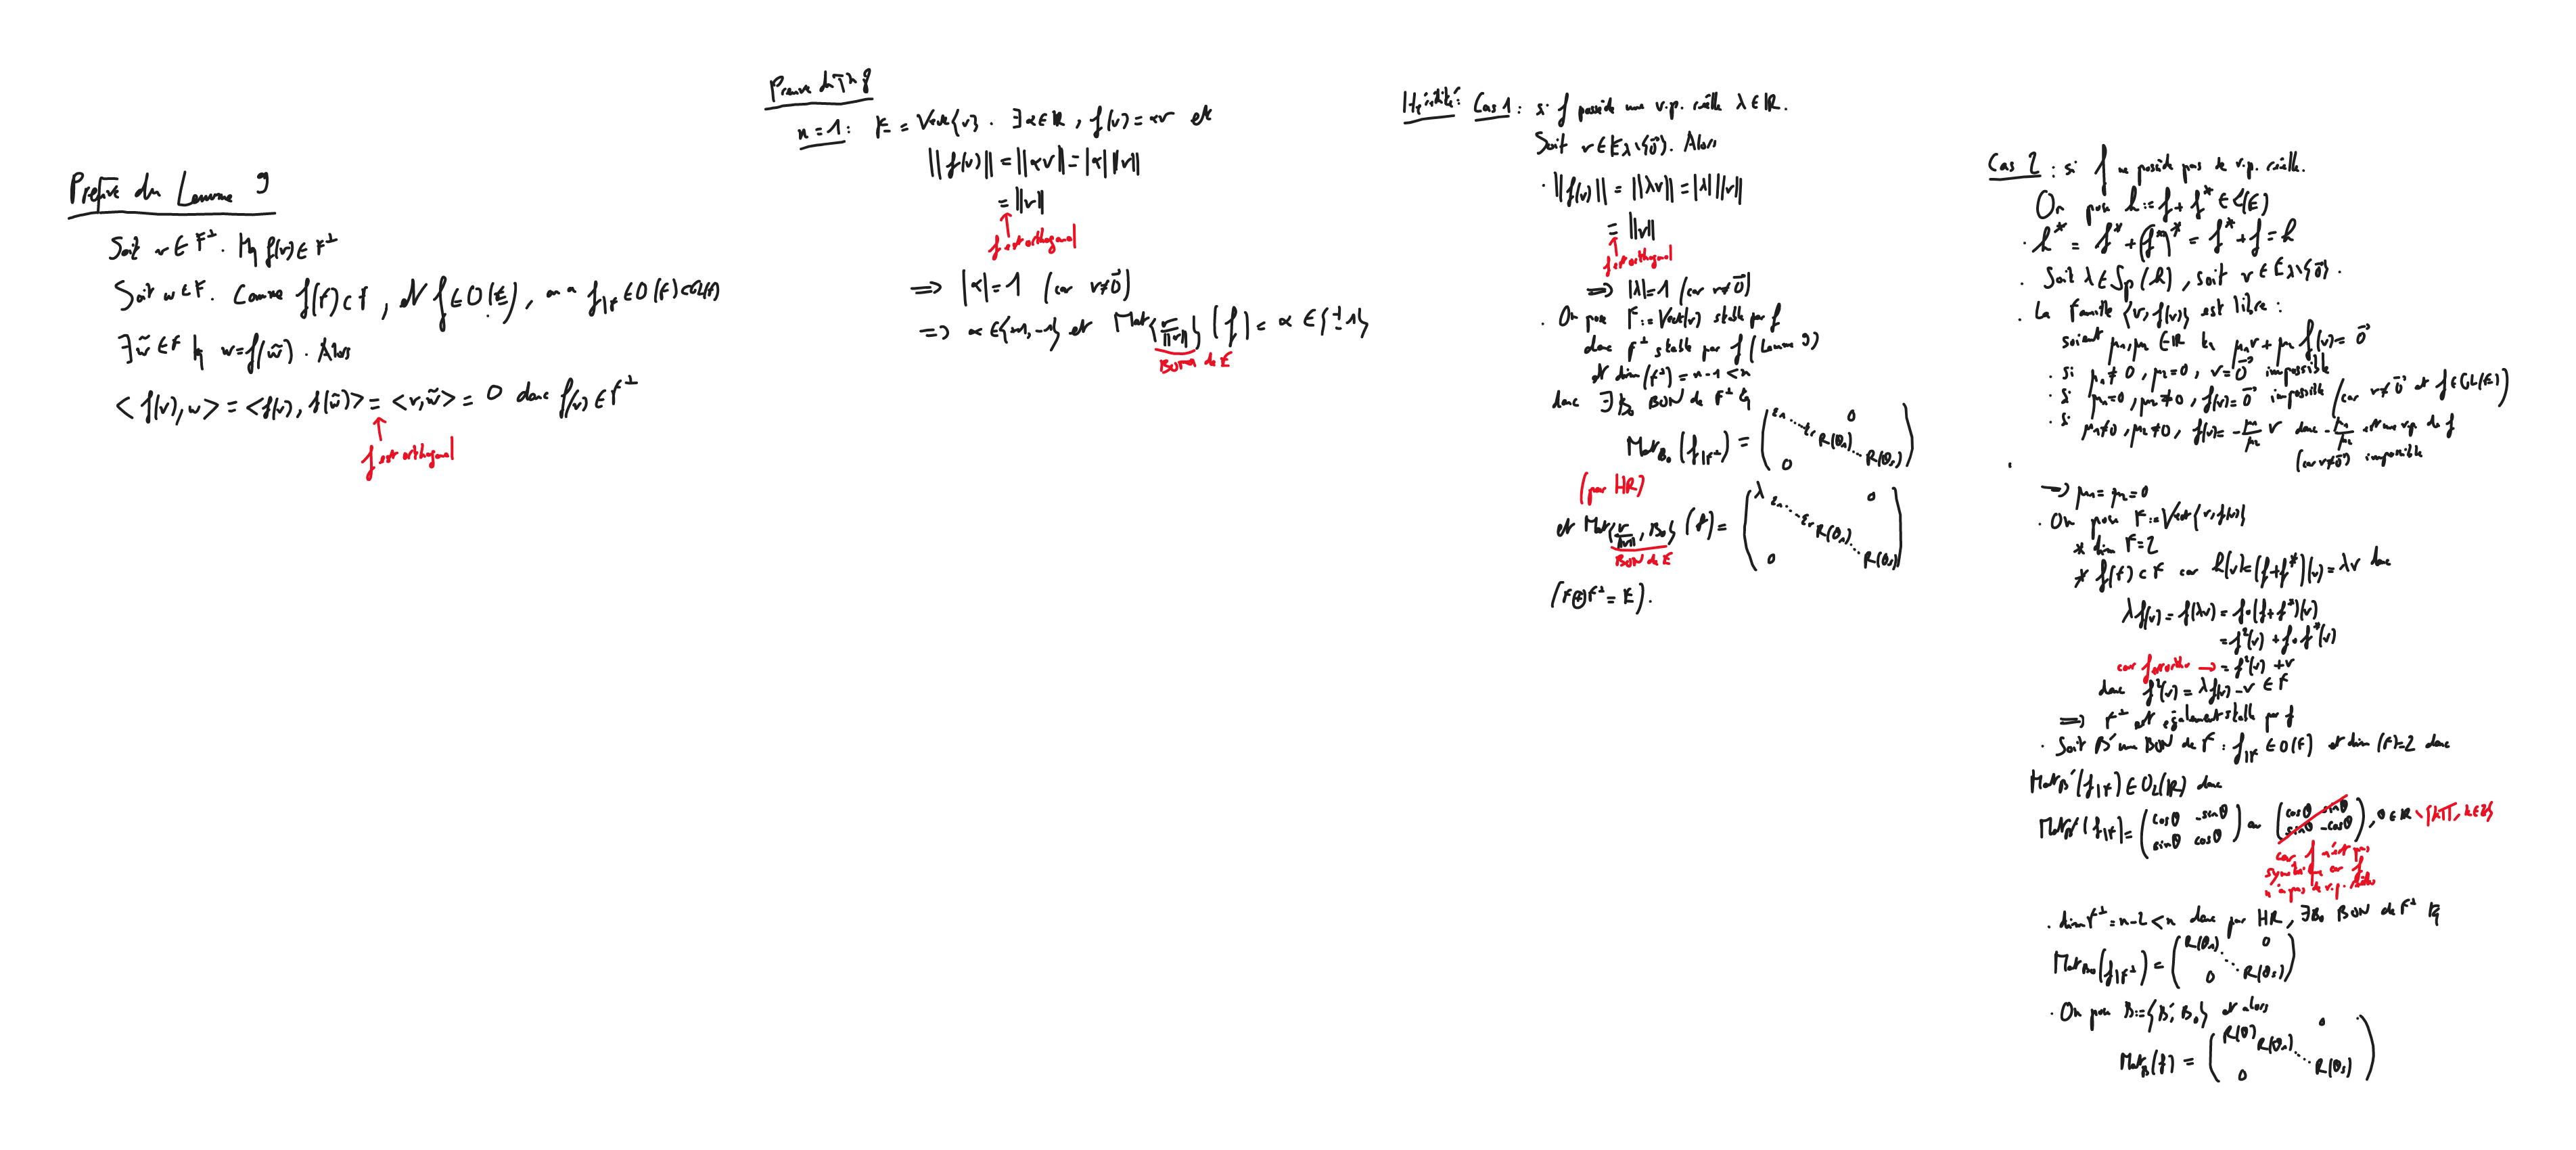 Preuve du Lemme 9
Soit v ∈ F^⊥. Mq f(v) ∈ F^⊥
Soit w ∈ F. Comme f(F) ⊂ F, et f ∈ O(E), on a f_{|F} ∈ O(F) ⊂ GL(F)
∃ w̃ ∈ F tq w = f(w̃). Alors
< f(v), w > = < f(v), f(w̃) > = < v, w̃ > = 0 donc f(v) ∈ F^⊥
↑
f est orthogonal
Preuve du Th 8
n = 1 : E = Vect{v}. ∃ α ∈ ℝ, f(v) = αv et
||f(v)|| = ||αv|| = |α| ||v||
= ||v||
↑
f est orthogonal
⟹ |α| = 1 (car v ≠ 0⃗)
⟹ α ∈ {+1, -1} et Mat_{{v/||v||}} (f) = α ∈ {±1}
BON de E
Hérédité : Cas 1 : si f possède une v.p. réelle λ ∈ ℝ.
Soit v ∈ E_λ \ {0⃗}. Alors
· ||f(v)|| = ||λv|| = |λ| ||v||
= ||v||
↑
f est orthogonal
⟹ |λ| = 1 (car v ≠ 0⃗)
· On pose F := Vect(v) stable par f
donc F^⊥ stable par f (Lemme 9)
et dim(F^⊥) = n-1 < n
donc ∃ B_0 BON de F^⊥ tq
Mat_{B_0} (f_{|F^⊥}) = ( ε_1 ⋱ ε_r R(θ_1) ⋱ R(θ_s) ) 0 0
(par HR)
et Mat_{{v/||v||, B_0}} (f) = ( λ ε_1 ⋱ ε_r R(θ_1) ⋱ R(θ_s) ) 0 0
BON de E
(F ⊕ F^⊥ = E).
Cas 2 : si f ne possède pas de v.p. réelle.
On pose h := f + f* ∈ L(E)
· h* = f* + (f*)* = f* + f = h
· Soit λ ∈ Sp(h), soit v ∈ E_λ \ {0⃗}.
· La famille {v, f(v)} est libre :
soient μ_1, μ_2 ∈ ℝ tq μ_1 v + μ_2 f(v) = 0⃗
· si μ_1 ≠ 0, μ_2 = 0, v = 0⃗ impossible
· si μ_1 = 0, μ_2 ≠ 0, f(v) = 0⃗ impossible (car v ≠ 0⃗ et f ∈ GL(E))
· si μ_1 ≠ 0, μ_2 ≠ 0, f(v) = -μ_1/μ_2 v donc -μ_1/μ_2 est une v.p. de f
(car v ≠ 0⃗) impossible
⟹ μ_1 = μ_2 = 0
· On pose F := Vect{v, f(v)}
* dim F = 2
* f(F) ⊂ F car h(v) = (f+f*)(v) = λv donc
λf(v) = f(λv) = f∘(f+f*)(v)
= f²(v) + f∘f*(v)
car f ortho → = f²(v) + v
donc f²(v) = λf(v) - v ∈ F
⟹ F^⊥ est également stable par f
· Soit B' une BON de F : f_{|F} ∈ O(F) et dim(F) = 2 donc
Mat_{B'}(f_{|F}) ∈ O_2(ℝ) donc
Mat_{B'}(f_{|F}) = ( cosθ -sinθ ; sinθ cosθ ) ou ( cosθ sinθ ; sinθ -cosθ ), θ ∈ ℝ \ {kπ, k∈ℤ}
car f n'est pas
symétrique car f
n'a pas de v.p. réelles
· dim F^⊥ = n-2 < n donc par HR, ∃ B_0 BON de F^⊥ tq
Mat_{B_0}(f_{|F^⊥}) = ( R(θ_1) ⋱ R(θ_s) ) 0 0
· On pose B := {B', B_0} et alors
Mat_B(f) = ( R(θ) R(θ_1) ⋱ R(θ_s) ) 0 0